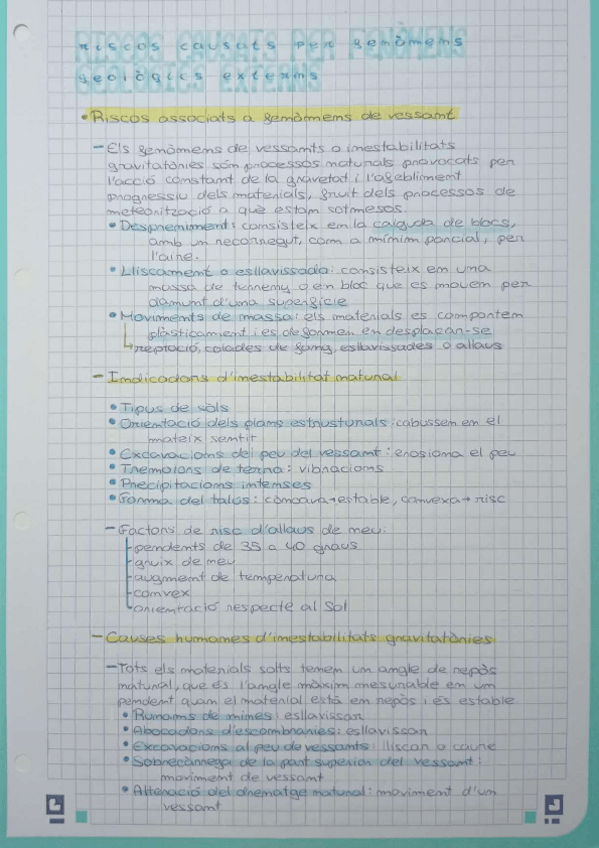 RISCOS CAUSATS PER FENÒMENS
GEOLÒGICS EXTERNS
• Riscos associats a fenòmens de vessant
- Els fenòmens de vessants o inestabilitats
gravitatòries són processos naturals provocats per
l'acció constant de la gravetat i l'afebliment
progressiu dels materials, fruit dels processos de
meteorització a què estan sotmesos.
• Despreniment: consisteix en la caiguda de blocs,
amb un recorregut, com a mínim parcial, per
l'aire.
• Lliscament o esllavissada: consisteix en una
massa de terreny o en bloc que es mouen per
damunt d'una superfície
• Moviments de massa: els materials es comporten
plàsticament i es deformen en desplaçar-se
↳ reptació, colades de fang, esllavissades o allaus
- Indicadors d'inestabilitat natural
• Tipus de sòls
• Orientació dels plans estructurals: cabussen en el
mateix sentit
• Excavacions del peu del vessant: erosiona el peu
• Tremolors de terra: vibracions
• Precipitacions intenses
• Forma del talús: còncava→estable, convexa→risc
- Factors de risc d'allaus de neu:
- pendents de 35 a 40 graus
- gruix de neu
- augment de temperatura
- convex
- orientació respecte al Sol
- Causes humanes d'inestabilitats gravitatòries
- Tots els materials solts tenen un angle de repòs
natural, que és l'angle màxim mesurable en un
pendent quan el material està en repòs i és estable
• Runams de mines: esllavissar
• Abocadors d'escombraries: esllavissar
• Excavacions al peu de vessants: lliscar o caure
• Sobrecàrrega de la part superior del vessant:
moviment de vessant
• Alteració del drenatge natural: moviment d'un
vessant